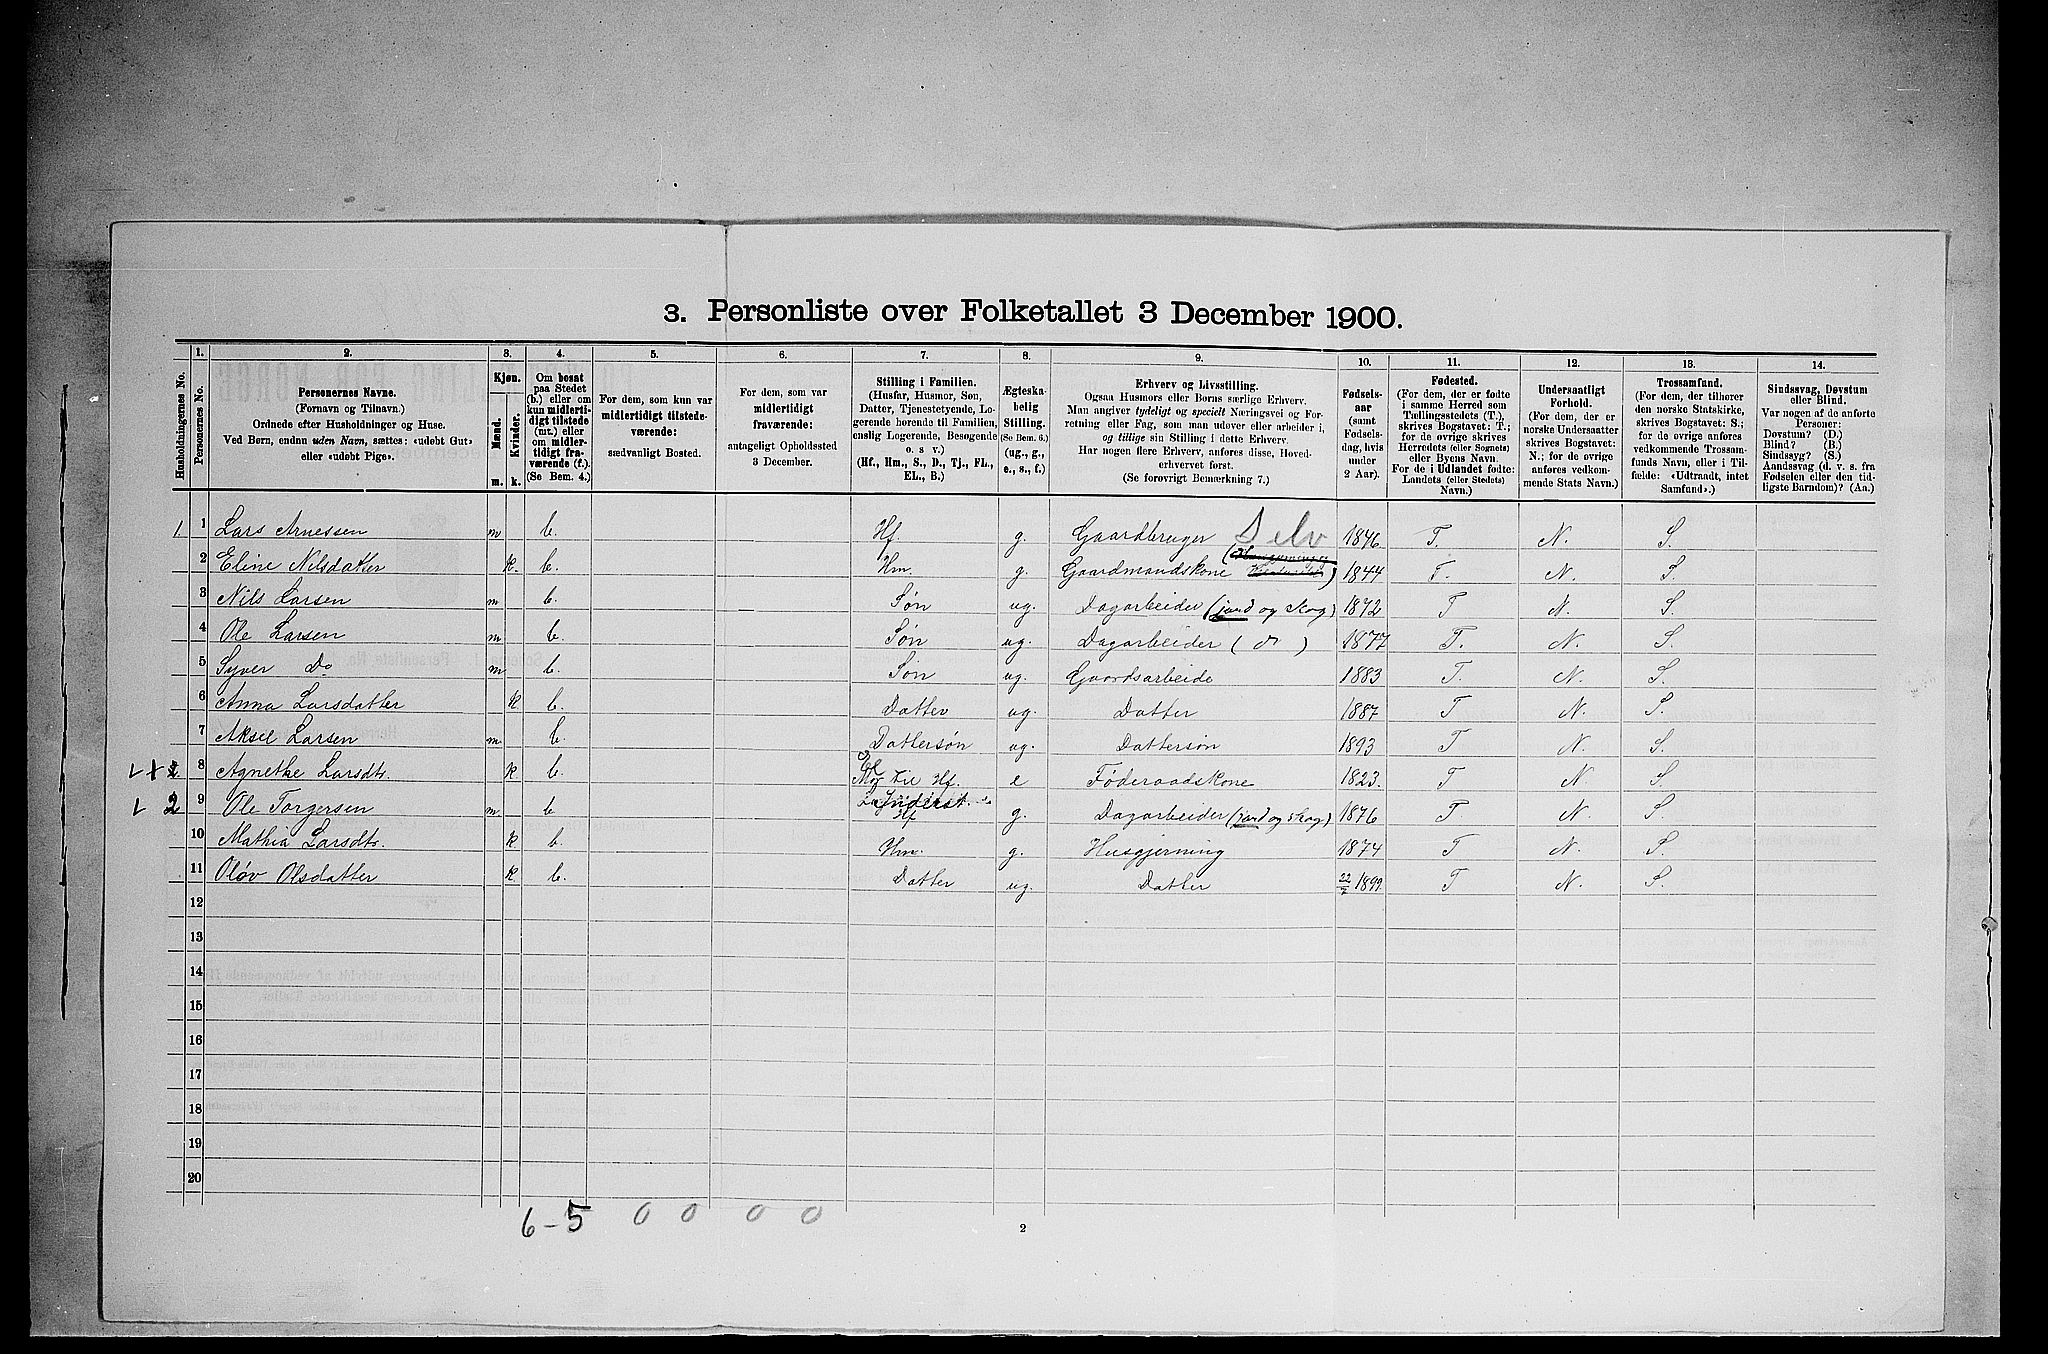 3. Personliste over Folketallet 3 December 1900.
Husholdningernes No.
1. Personernes No.
2. Personernes Navne. (Fornavn og Tilnavn.) Ordnede efter Husholdninger og Huse. Ved Børn, endnu uden Navn, sættes: «udøbt Gut» eller «udøbt Pige».
3. Kjøn. Mænd. m. Kvinder. k.
4. Om bosat paa Stedet (b.) eller om kun midlertidigt tilstede (mt.) eller om midlertidigt fraværende (f.). (Se Bem. 4.)
5. For dem, som kun var midlertidigt tilstedeværende: sædvanligt Bosted.
6. For dem, som var midlertidigt fraværende: antageligt Opholdssted 3 December.
7. Stilling i Familien. (Husfar, Husmor, Søn, Datter, Tjenestetyende, Logerende hørende til Familien, enslig Logerende, Besøgende o. s v.) (Hf., Hm., S., D., Tj., FL., EL., B.)
8. Ægteskabelig Stilling. (Se Bem. 6.) (ug., g., e., s., f.)
9. Erhverv og Livsstilling. Ogsaa Husmors eller Børns særlige Erhverv. Man angiver tydeligt og specielt Næringsvei og Forretning eller Fag, som man udøver eller arbeider i, og tillige sin Stilling i dette Erhverv. Har nogen flere Erhverv, anføres disse, Hovederhvervet først. (Se forøvrigt Bemærkning 7.)
10. Fødselsaar (samt Fødselsdag, hvis under 2 Aar).
11. Fødested. (For dem, der er fødte i samme Herred som Tællingsstedets (T.), skrives Bogstavet: T.; for de øvrige skrives Herredets (eller Sognets) eller Byens Navn. For de i Udlandet fødte: Landets (eller Stedets) Navn.)
12. Undersaatligt Forhold. (For dem, der er norske Undersaatter skrives Bogstavet: N.; for de øvrige anføres vedkommende Stats Navn.)
13. Trossamfund. (For dem, der tilhører den norske Statskirke, skrives Bogstavet: S.; for de øvrige anføres vedkommende Trossamfunds Navn, eller i Tilfælde: «Udtraadt, intet Samfund».)
14. Sindssvag, Døvstum eller Blind. Var nogen af de anførte Personer: Døvstum? (D.) Blind? (B.) Sindssyg? (S.) Aandssvag (d. v. s. fra Fødselen eller den tidligste Barndom)? (Aa.)
1. 1 Lars Arnessen m b. Hf. g. Gaardbruger Selv 1846 T. N. S.
2 Eline Nilsdatter k. b. Hm. g. Gaardmandskone 1844 T. N. S.
3 Nils Larsen m b. Søn ug. Dagarbeider (jord og skog) 1872 T N. S.
4 Ole Larsen m b. Søn ug. Dagarbeider ( do ) 1877 T. N. S.
5 Syver Do m b. Søn ug. Gaardsarbeide 1883 T. N. S.
6 Anna Larsdatter k b. Datter ug. Datter 1887 T N. S.
7 Aksel Larsen m. b. Dattersøn ug. Dattersøn 1893 T N. S.
8 Agnethe Larsdtr. k b. El Mor til Hf. e Føderaadskone 1823. T N S.
2 9 Ole Torgersen m. b Inderst Hf g. Dagarbeider (jord og skog) 1876 T. N. S.
10 Mathia Larsdtr. k b. Hm. g. Husgjerning 1874 T N. S.
11 Oløv Olsdatter k b. Datter ug. Datter 22/7 1899 T N. S.
12
13
14
15
16
17
18
19
20
6-5 0 0 0 0
2